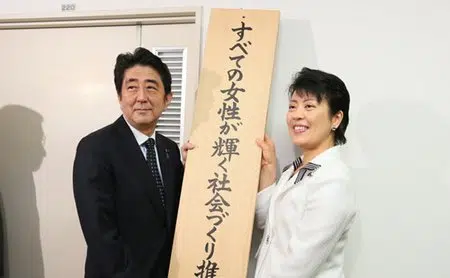 220
すべての女性が輝く社会づくり推